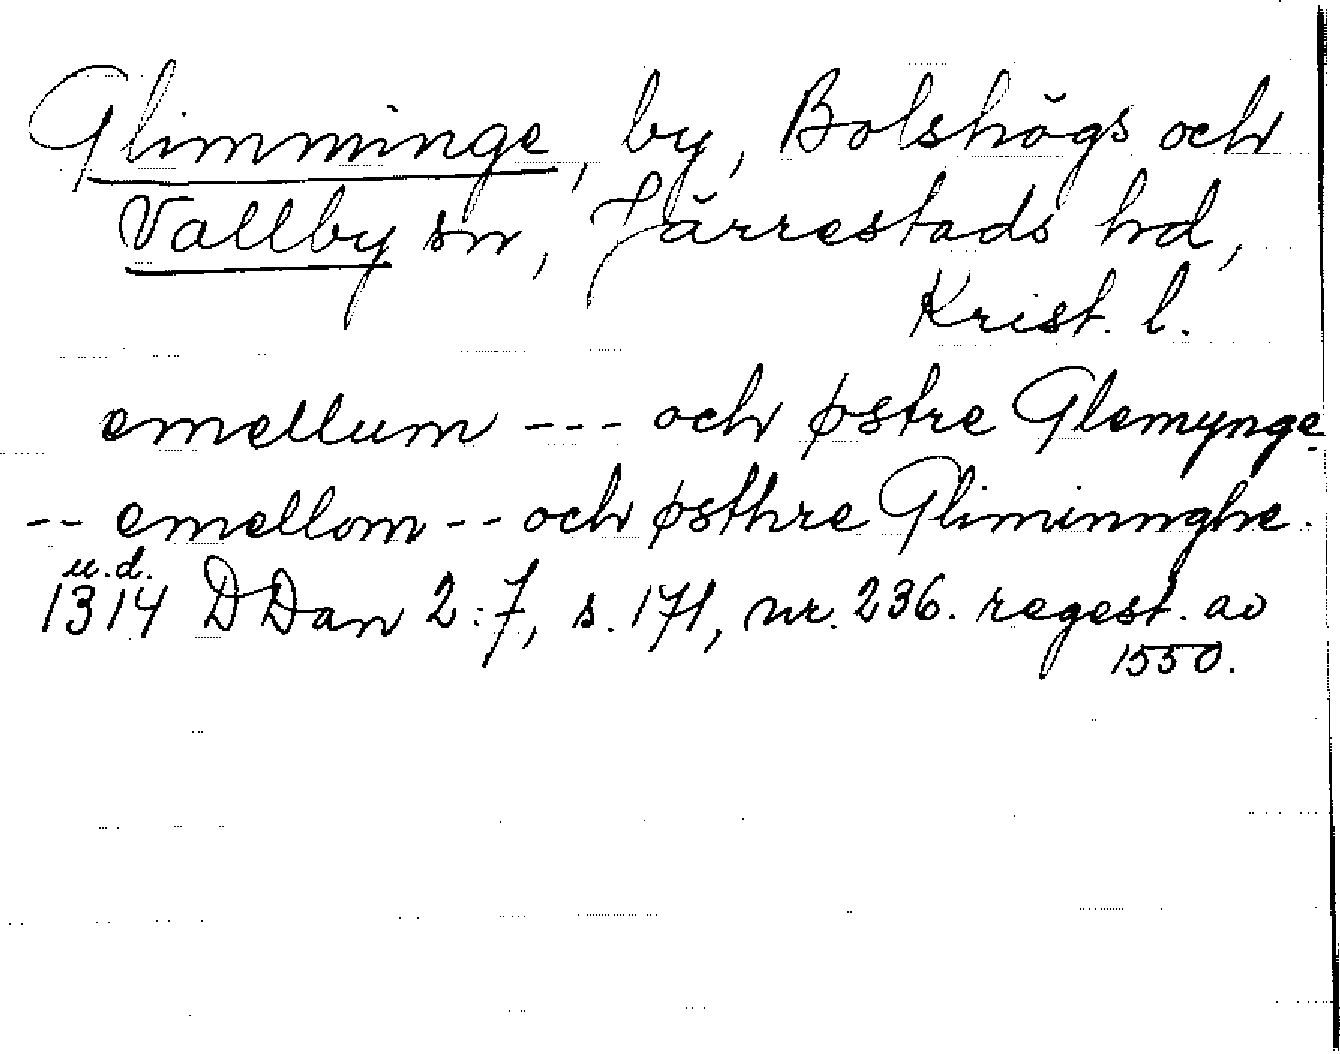 Glimminge, by, Bolshögs och
Vallby sn, Järrestads hd,
Krist. l.
emellum --- och østre Glemynge
-- emellom -- och østhre Gliminnghe.
u.d.
1314 DDan 2:7, s. 171, nr. 236. regest. av
1550.